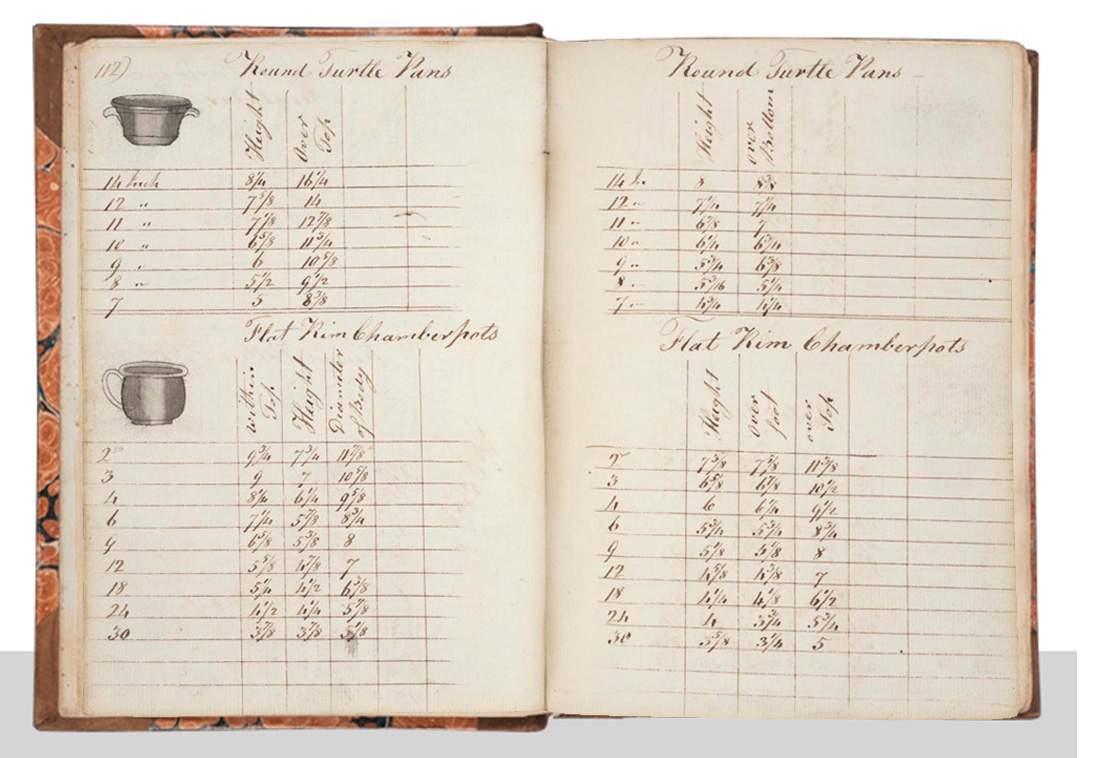 112)
Round Turtle Pans
Height
Over Top
14 Inch 8 1/4 16 1/4
12 " 7 5/8 14
11 " 7 1/8 12 7/8
10 " 6 5/8 11 3/4
9 " 6 10 5/8
8 " 5 1/2 9 1/2
7 5 8 3/8
Flat Rim Chamberpots
within Top
Height
Diameter of Body
2 9 3/4 7 3/4 11 7/8
3 9 7 10 5/8
4 8 1/4 6 1/4 9 5/8
6 7 1/4 5 7/8 8 3/4
9 6 5/8 5 3/8 8
12 5 5/8 4 7/8 7
18 5 1/4 4 1/2 6 3/8
24 4 1/2 4 1/4 5 7/8
30 3 7/8 3 7/8 5 1/8
Round Turtle Pans
Height
over Bottom
14 In 8 8 3/8
12 " 7 1/4 7 1/4
11 " 6 7/8 7
10 " 6 1/4 6 3/4
9 " 5 3/4 6 3/8
8 " 5 3/16 5 1/4
7 " 4 3/4 4 1/4
Flat Rim Chamberpots
Height
Over foot
over Top
2 7 3/8 7 3/8 11 3/8
3 6 5/8 6 7/8 10 1/2
4 6 6 1/4 9 1/2
6 5 3/4 5 3/4 8 3/4
9 5 1/8 8
12 4 5/8 4 3/8 7
18 4 1/4 4 1/8 6 1/2
24 4 3 3/4 5 3/4
30 3 5/8 3 1/4 5